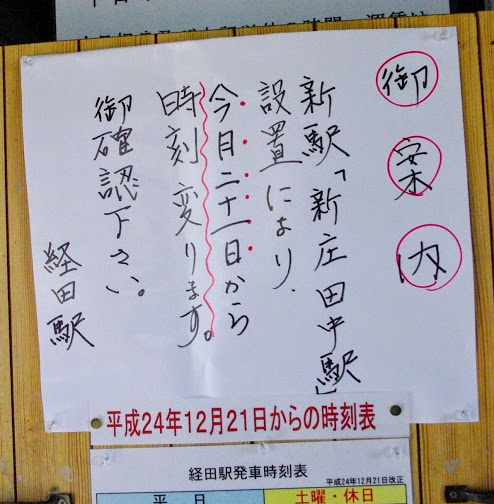 御案内
新駅「新庄田中駅」
設置により、
今月二十一日から
時刻変ります。
御確認下さい。
経田駅
平成24年12月21日からの時刻表
経田駅発車時刻表
平成24年12月21日改正
平 日
土曜・休日